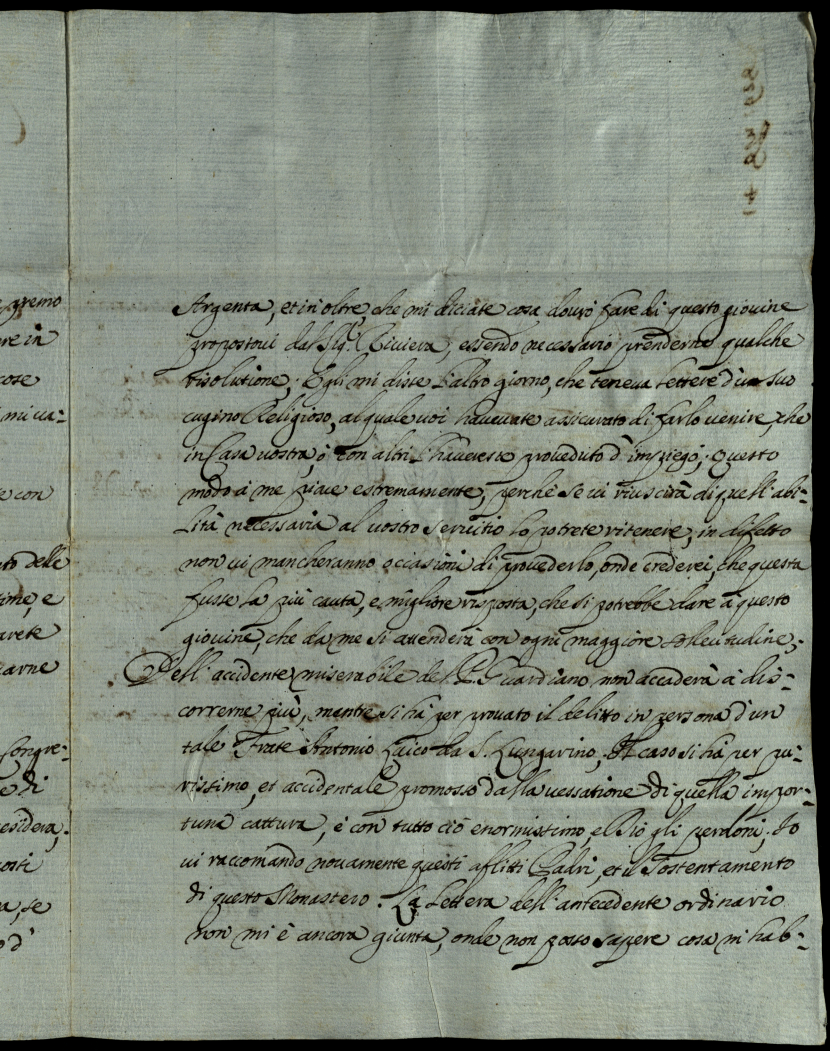 gremo
re in
cose
mi ua=
e con
to delle
time, e
avete
darne
Congre=
e di
esidera;
osti
a, se
o d'
Argenta, et in oltre, che mi diciate cosa dourò fare di questo giouine
propostoui dal Sig.r Riuiera, essendo necessario prenderne qualche
risolutione; Egli mi disse l'altro giorno, che teneua lettere d'un suo
cugino Religioso, al quale uoi haueuate assicurato di farlo uenire, che
in Casa uostra, ò con altri l'hauereste proueduto d'impiego; Questo
modo à me piace estremamente, perche se ui riuscirà di quell'abi=
lità necessaria al uostro seruitio lo potrete ritenere, in difetto
non ui mancheranno occasioni di prouederlo, onde crederei, che questa
fusse la più cauta, e migliore risposta, che si potrebbe dare à questo
giouine, che da me si attenderà con ogni maggiore sollecitudine;
Dell'accidente miserabile del P. Guardiano non accaderà à dis=
correrne più, mentre si hà per prouato il delitto in persona d'un
tale Frate Antonio Laico da S. Lungarino, Il caso si hà per pu=
rissimo, et accidentale promosso dalla uessatione di quella impor=
tuna cattura, è con tutto ciò enormissimo, e Dio gli perdoni; Io
ui raccomando nouamente questi afflitti Padri, et il Sostentamento
di questo Monastero. La Lettera dell'antecedente ordinario
non mi è ancora giunta, onde non posso sapere cosa m'hab=